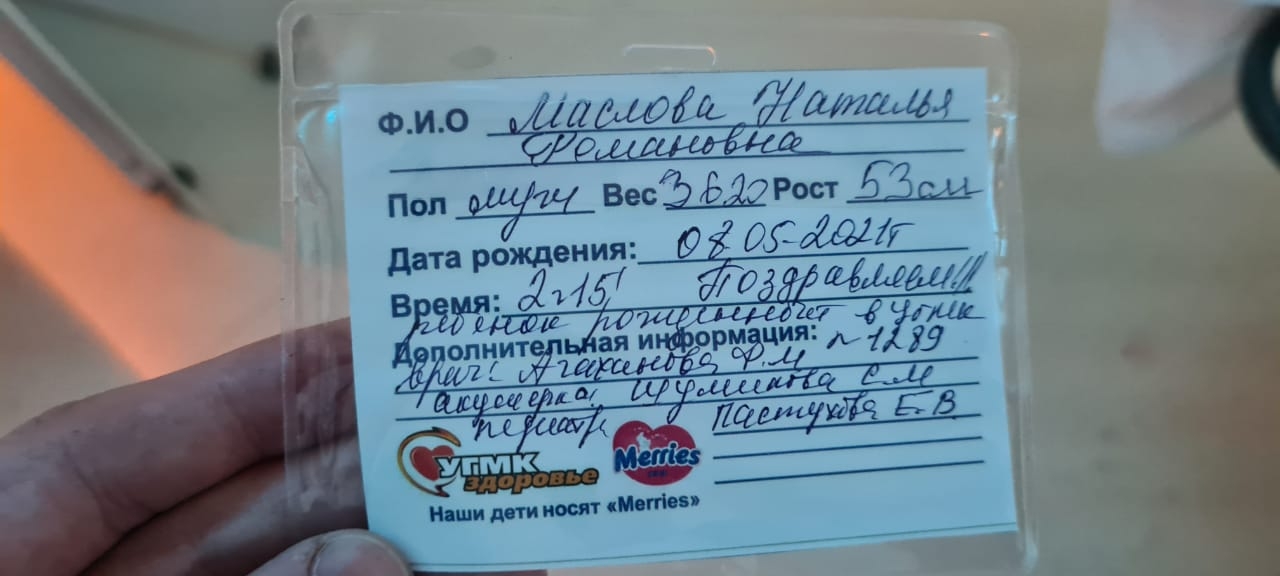 Ф.И.О Маслова Наталья
Романовна
Пол муж Вес 3620 Рост 53см
Дата рождения: 08.05-2021г
Время: 2ч15' Поздравляем!!!
ребёнок рождённый в
Дополнительная информация: n 1289
врач: Агаханова Ф.М
акушерка, Шумилова С.М
педиатр Пастухова Е.В
УГМК
здоровье
Merries
Наши дети носят «Merries»